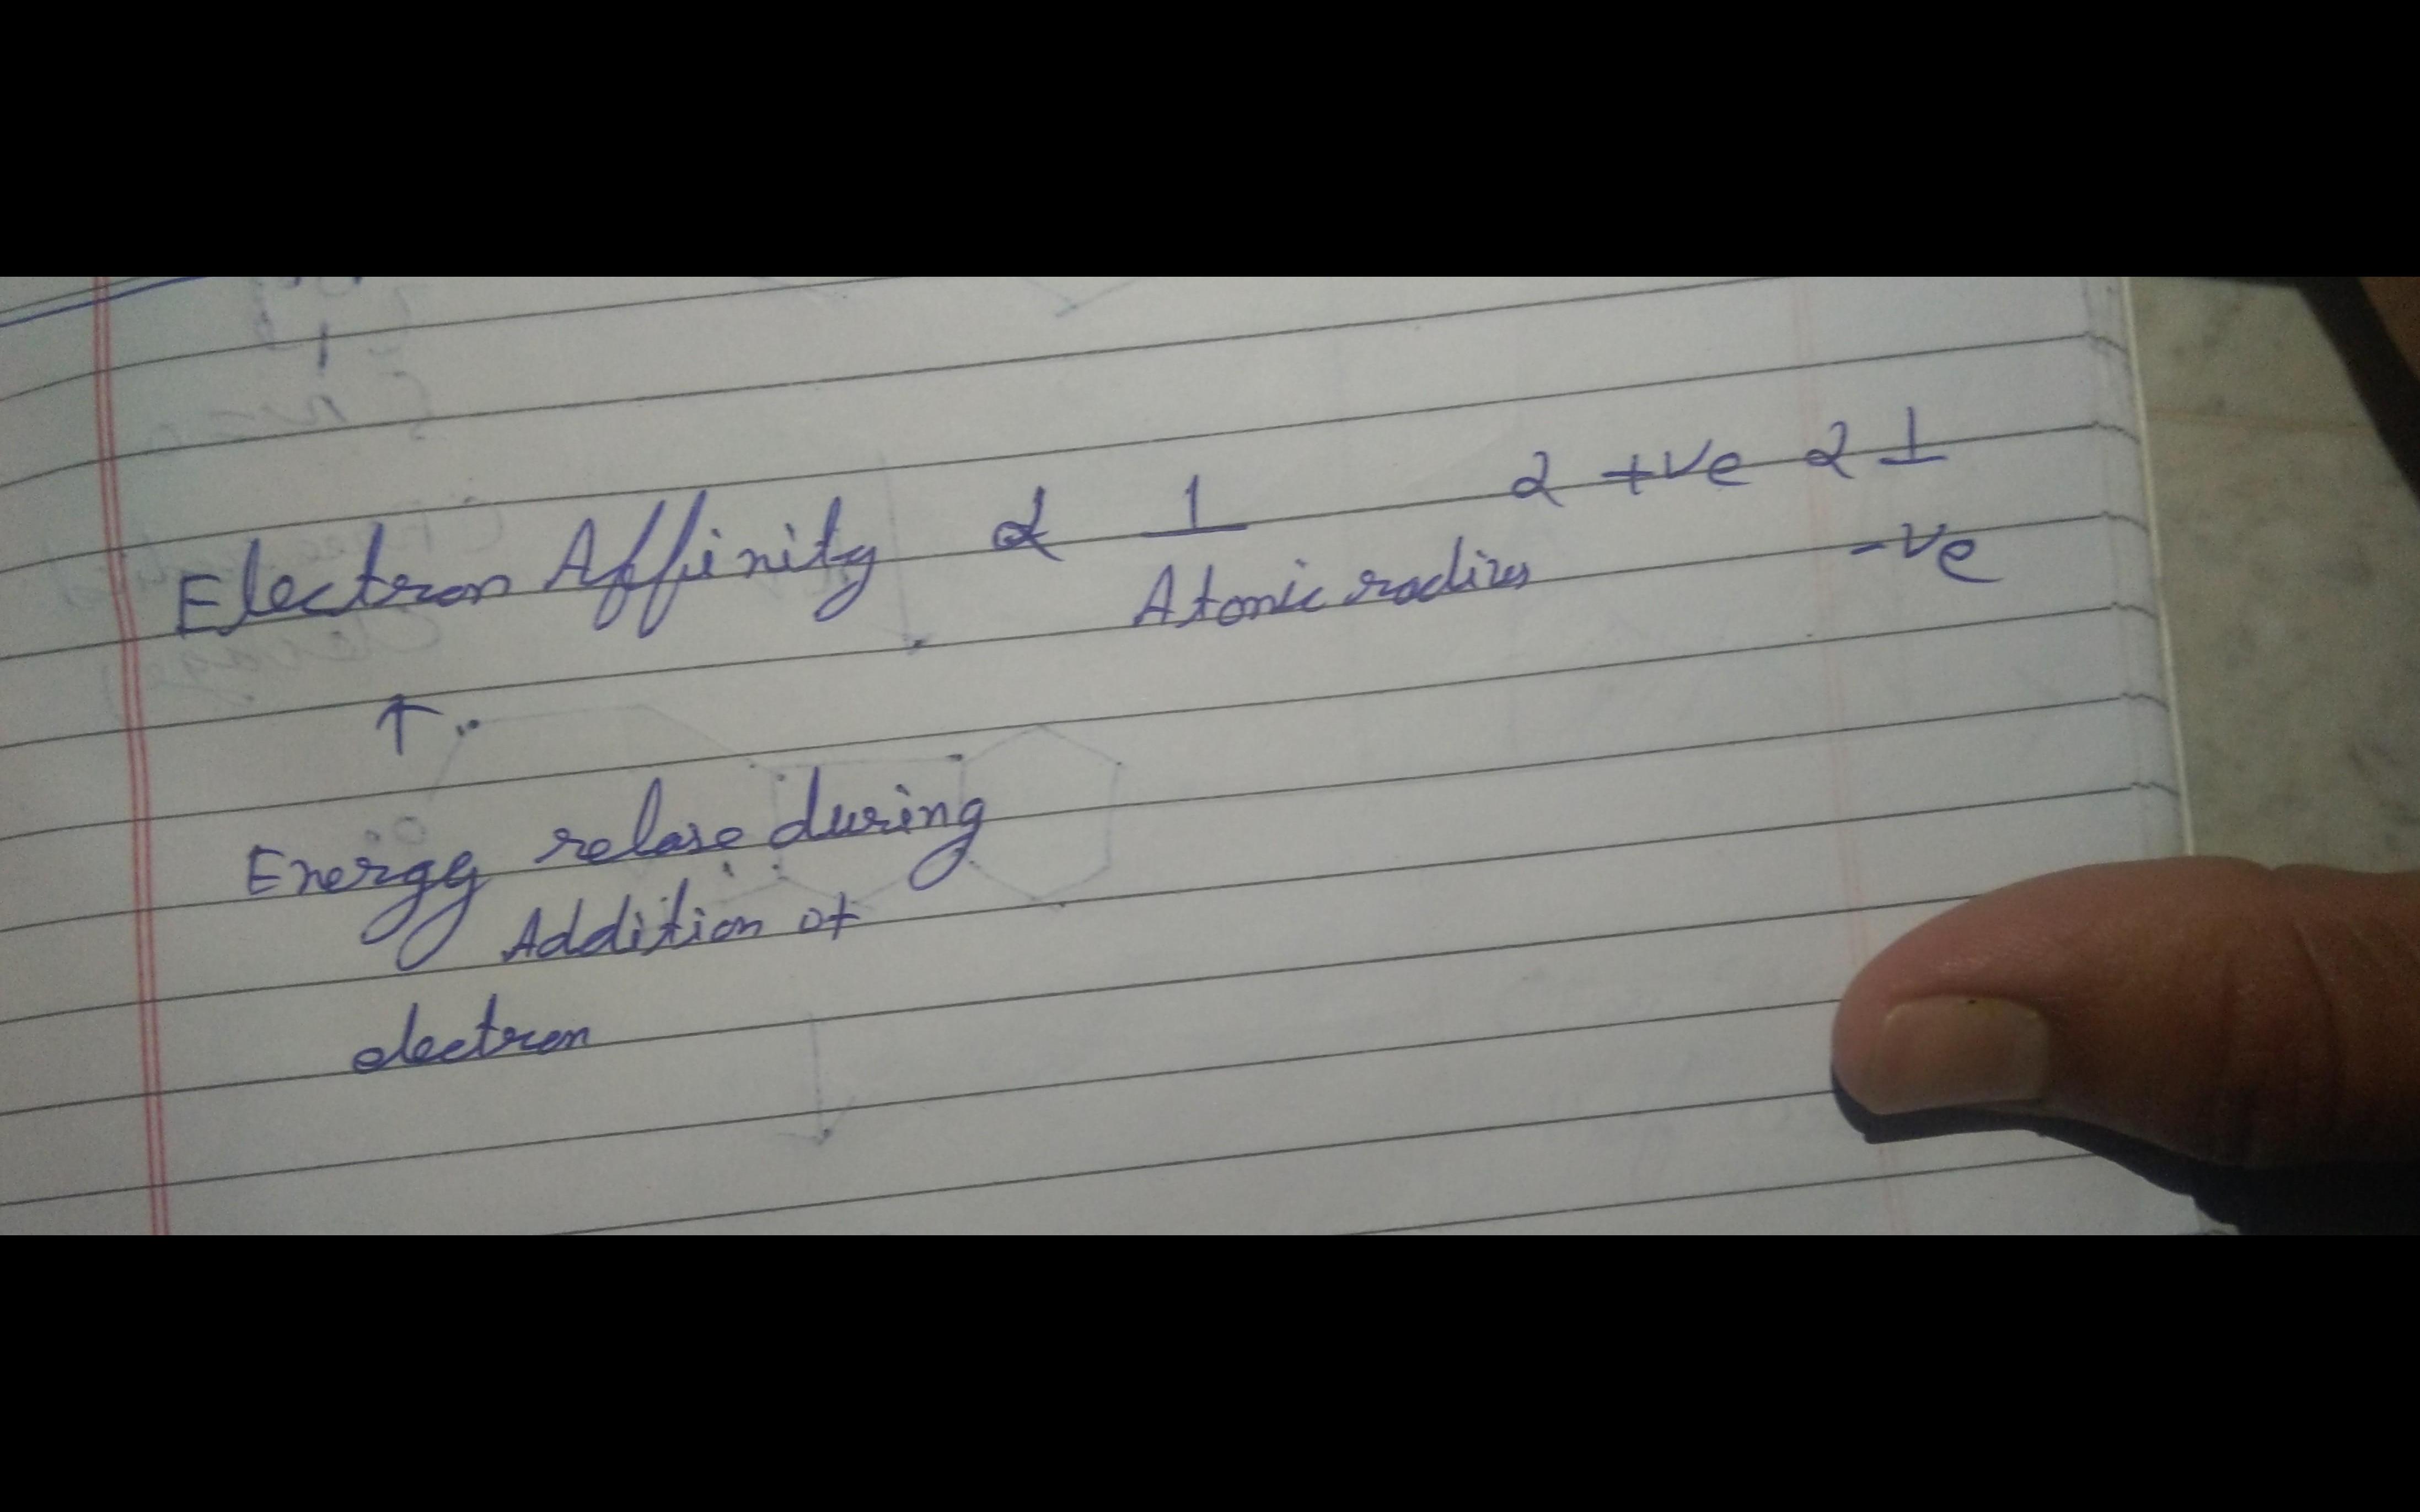 Electron Affinity α 1/Atomic radius α +ve α 1/-ve
↑
Energy relase during
Addition of
electron